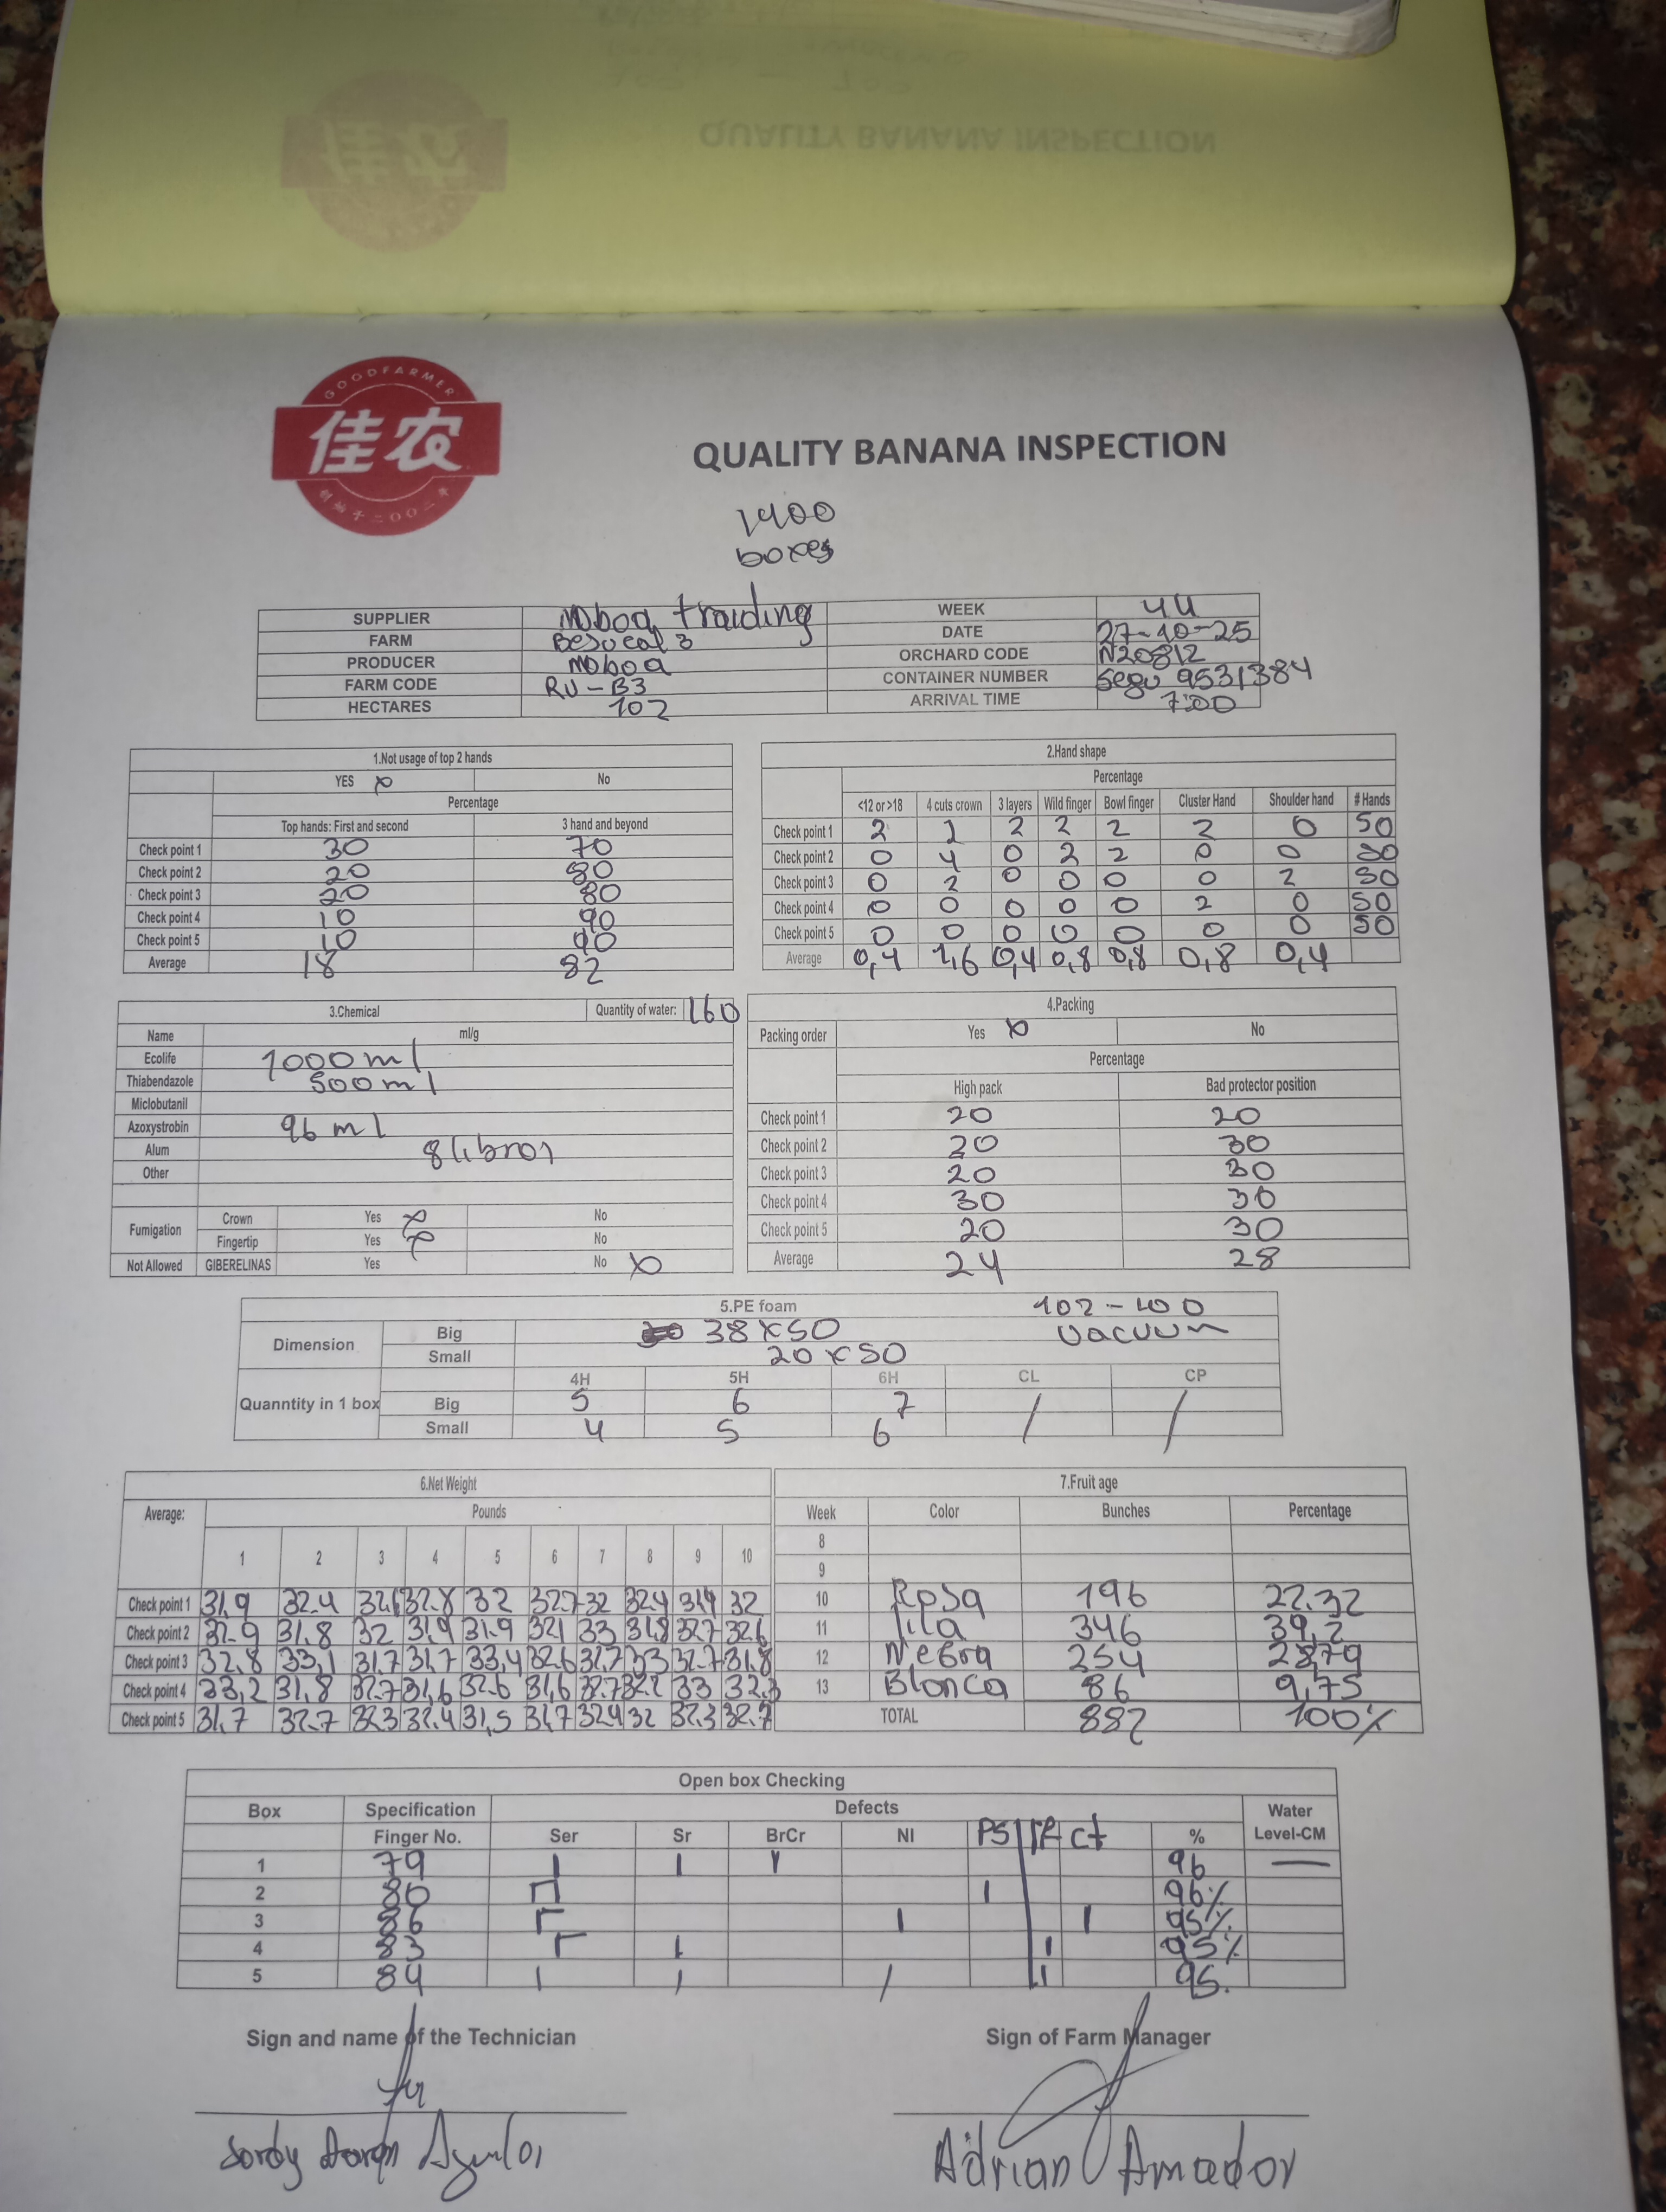 QUALITY BANANA INSPECTION
GOODFARMER
佳农
创始于二〇〇二年
QUALITY BANANA INSPECTION
1400
boxes
SUPPLIER Mboa traiding WEEK 44
FARM Besucal 3 DATE 27-10-25
PRODUCER Mboa ORCHARD CODE N20812
FARM CODE RU-B3 CONTAINER NUMBER Segu 9531384
HECTARES 102 ARRIVAL TIME 7:00
1.Not usage of top 2 hands
YES x No
Percentage
Top hands: First and second 3 hand and beyond
Check point 1 30 70
Check point 2 20 80
Check point 3 20 80
Check point 4 10 90
Check point 5 10 90
Average 18 82
2.Hand shape
Percentage
<12 or >18 4 cuts crown 3 layers Wild finger Bowl finger Cluster Hand Shoulder hand # Hands
Check point 1 2 2 2 2 2 2 0 50
Check point 2 0 4 0 2 2 0 0 50
Check point 3 0 2 0 0 0 0 2 50
Check point 4 0 0 0 0 0 2 0 50
Check point 5 0 0 0 0 0 0 0 50
Average 0,4 1,6 0,4 0,8 0,8 0,8 0,4
3.Chemical Quantity of water: 160
Name ml/g
Ecolife 1000 ml
Thiabendazole 500 ml
Miclobutanil
Azoxystrobin 96 ml
Alum 8 libras
Other
Fumigation Crown Yes x No
Fingertip Yes x No
Not Allowed GIBERELINAS Yes No x
4.Packing
Packing order Yes x No
Percentage
High pack Bad protector position
Check point 1 20 20
Check point 2 20 30
Check point 3 20 30
Check point 4 30 30
Check point 5 20 30
Average 24 28
5.PE foam 102-100
Dimension Big 38x50 Vacuum
Small 20x50
4H 5H 6H CL CP
Quanntity in 1 box Big 5 6 7 /
Small 4 5 6 /
6.Net Weight
Average: Pounds
1 2 3 4 5 6 7 8 9 10
Check point 1 31,9 32.4 32,1 32.8 32 32.7 32 32,4 31,9 32
Check point 2 32.9 31,8 32 31,9 31.9 32,1 33 31,8 32.7 32,6
Check point 3 32,8 33,1 31.7 31,7 33,4 32.6 31,7 33 32.7 31,8
Check point 4 33,2 31,8 32.7 31,6 32.6 31,6 32.7 32,2 33 32,3
Check point 5 31,7 32.7 32,3 32,4 31,5 31,7 32,4 32 32,3 32.7
7.Fruit age
Week Color Bunches Percentage
8
9
10 Rosa 196 22.32
11 lila 346 39,2
12 Negra 254 28,79
13 Blanca 86 9,75
TOTAL 882 100%
Open box Checking
Box Specification Defects Water
Finger No. Ser Sr BrCr NI PS Ct % Level-CM
1 79 | | | 96 —
2 80 | 96%
3 86 | | 95%
4 83 | | 95%
5 84 | | | | 95.
Sign and name of the Technician Sign of Farm Manager
Adrian Amador